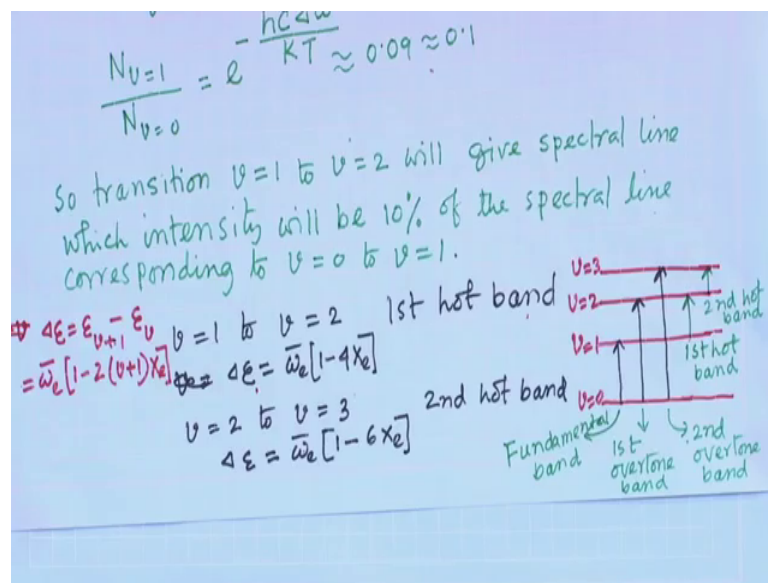 N_{υ=1} / N_{υ=0} = e^{-hcΔω/KT} ≈ 0.09 ≈ 0.1
So transition υ=1 to υ=2 will give spectral line
which intensity will be 10% of the spectral line
corresponding to υ=0 to υ=1.
Δε = ε_{υ+1} - ε_υ
= ω̄_e[1-2(υ+1)x_e]
υ=1 to υ=2 1st hot band
Δε = ω̄_e[1-4x_e]
υ=2 to υ=3 2nd hot band
Δε = ω̄_e[1-6x_e]
υ=3
υ=2
2nd hot
band
υ=1
1st hot
band
υ=0
Fundamental
band
1st
overtone
band
2nd
overtone
band